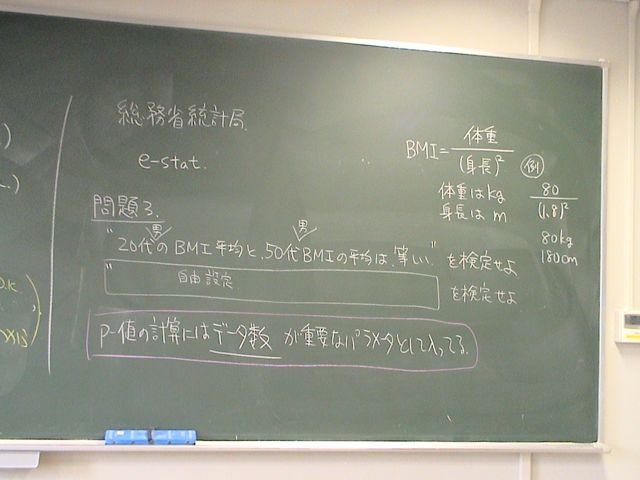 総務省統計局.
e-stat.
問題3.
男 男
"20代のBMI平均と、50代BMIの平均は、等しい" を検定せよ
" 自由設定 を検定せよ
P-値の計算にはデータ数が重要なパラメータとして入ってる.
BMI= 体重
(身長)²
例
体重はkg
身長は m
80
(1.8)²
80kg
180cm
.)
..)
O.K